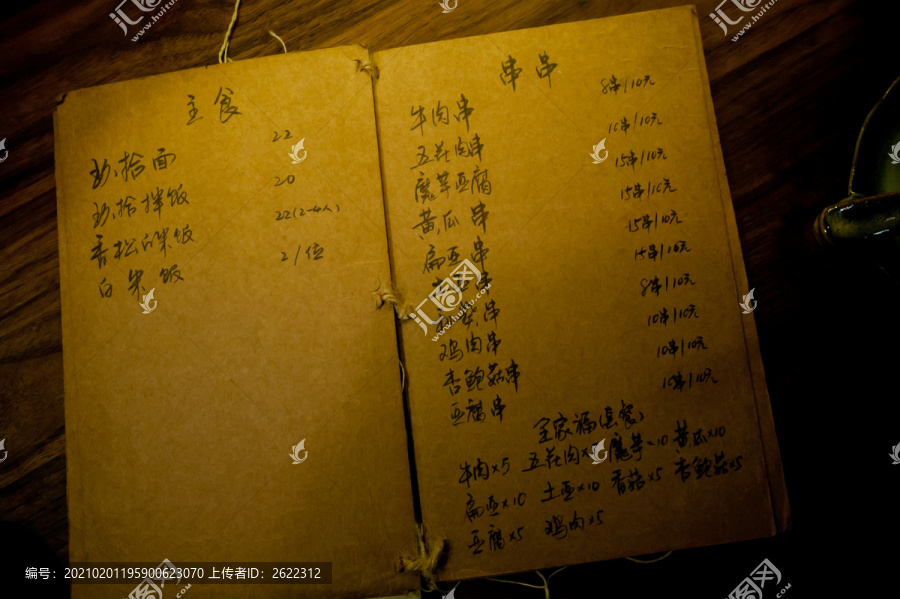 主食
玖拾面 22
玖拾拌饭 20
香松白米饭 22(2-4人)
白米饭 2/位
串串
牛肉串 8串/10元
五花肉串 10串/10元
魔芋豆腐 15串/10元
黄瓜串 15串/10元
扁豆串 15串/10元
串 15串/10元
串 8串/10元
鸡肉串 10串/10元
杏鲍菇串 10串/10元
豆腐串 10串/10元
全家福(套餐)
牛肉×5 五花肉×5 魔芋×10 黄瓜×10
扁豆×10 土豆×10 香菇×5 杏鲍菇×5
豆腐×5 鸡肉×5
编号：20210201195900623070 上传者ID：2622312